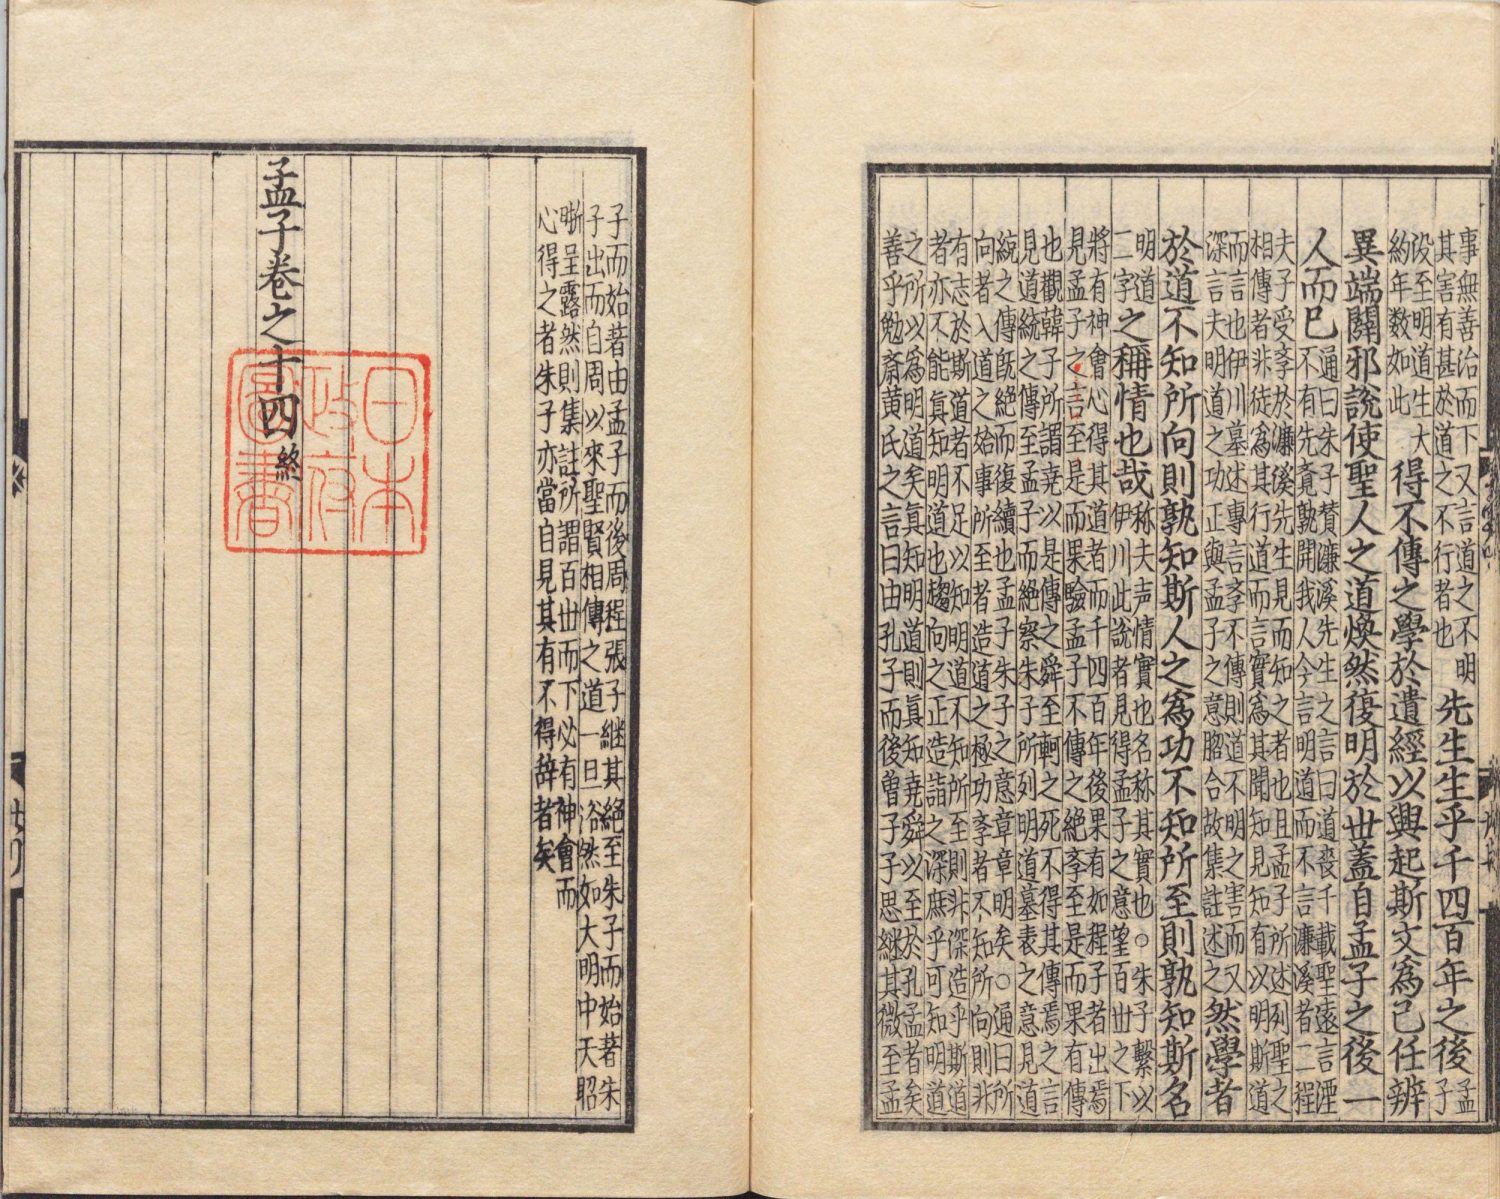 事無善治而下又言道之不明
其害有甚於道之不行者也
先生生乎千四百年之後
孟
子
没至明道生大
約年数如此
得不傳之學於遺經以興起斯文爲己任辨
異端闢邪說使聖人之道煥然復明於世蓋自孟子之後一
人而已
通曰朱子賛濂溪先生之言曰道喪千載聖遠言湮
不有先覺孰開我人今言明道而不言濂溪者二程
夫子受斈於濂溪先生見而知之者也且孟子所述列聖之
相傳者非徒爲其行道而言實爲其聞知見知有以明斯道
而言也伊川墓述專言斈不傳則道不明之害而又
深言夫明道之功正與孟子之意脗合故集註述之
然學者
於道不知所向則孰知斯人之爲功不知所至則孰知斯名
明道
二字
之稱情也哉
称夫声情實也名称其實也○朱子繫以
伊川此說者見得孟子之意望百世之下
將有神會心得其道者而千四百年後果有如程子者出焉
見孟子之言至是而果驗孟子不傳之絶斈至是而果有傳
也觀韓子所謂堯以是傳之舜至軻之死不得其傳焉之言
見道統之傳至孟子而絕察朱子所列明道墓表之意見道
統之傳旣絕而復續也孟子朱子之意章章明矣○通曰所
向者入道之始事所至者造道之極功斈者不知所向則非
有志於斯道者不足以知明道不知所至則非深造乎斯道
者亦不能眞知明道也趨向之正造詣之深庶乎可知明道
之所以爲明道矣眞知明道則眞知堯舜以至於孔孟者矣
善乎勉齋黃氏之言曰由孔子而後曾子子思継其微至孟
子而始著由孟子而後周程張子継其絶至朱子而始著朱
子出而自周以來聖賢相傳之道一旦浴然如大明中天昭
晣呈露然則集註所謂百世而下必有神會而
心得之者朱子亦當自見其有不得辞者矣
孟子卷之十四終
日本
政府
圖書